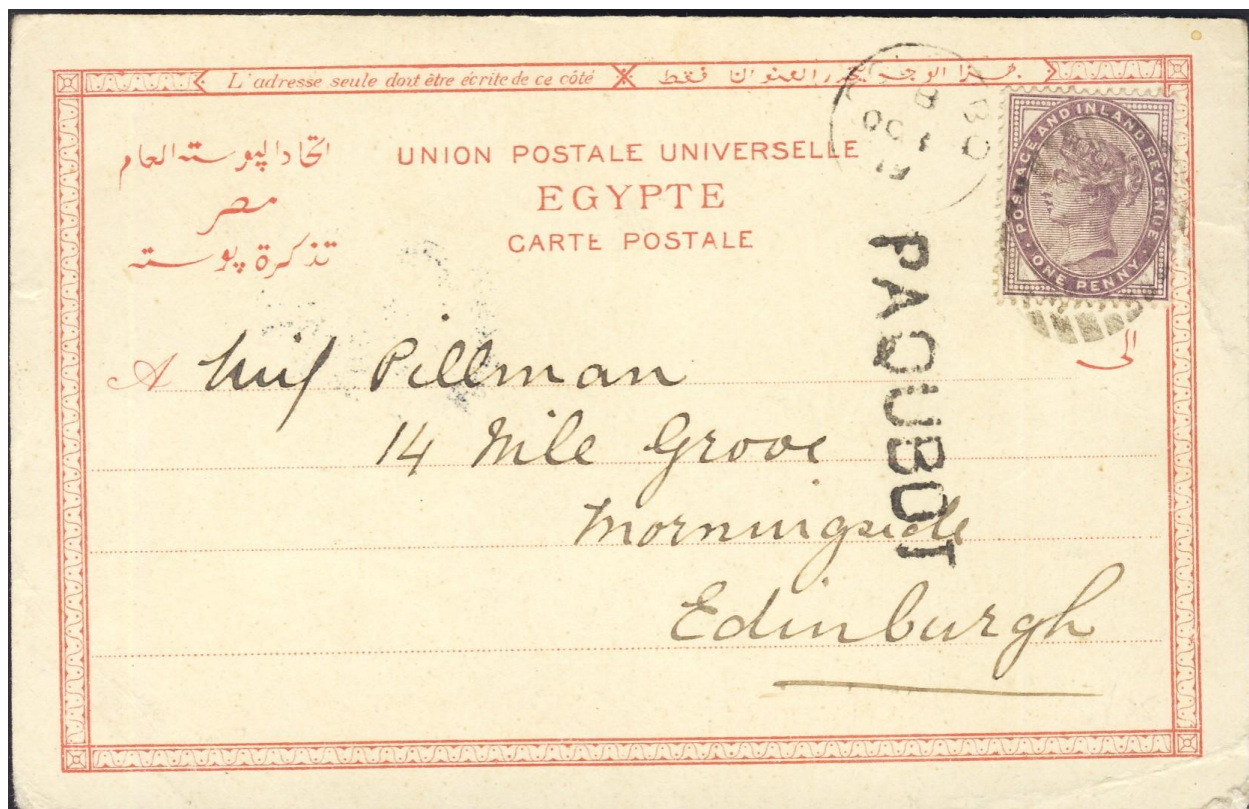 L'adresse seule doit être écrite de ce côté
هذا الوجه يحرر العنوان فقط
اتحاد البوسته العام
مصر
تذكرة بوسته
UNION POSTALE UNIVERSELLE
EGYPTE
CARTE POSTALE
POSTAGE AND INLAND REVENUE
ONE PENNY
PAQUBOT
الى
A Miss Pillman
14 Nile Grove
Morningside
Edinburgh